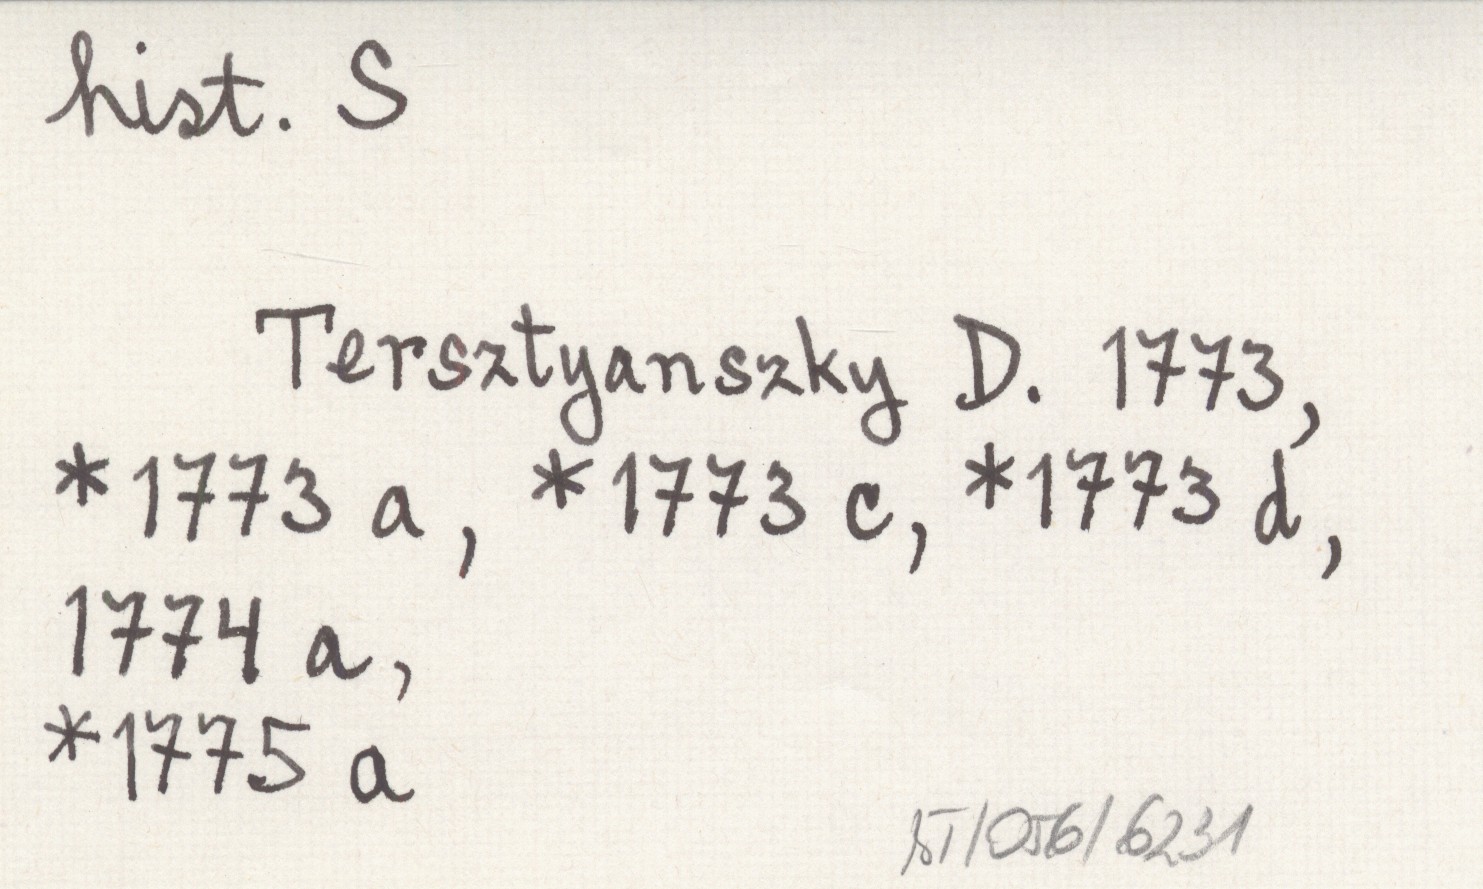 hist. S
Tersztyanszky D. 1773,
*1773 a, *1773 c, *1773 d,
1774 a,
*1775 a
ST/056/6231